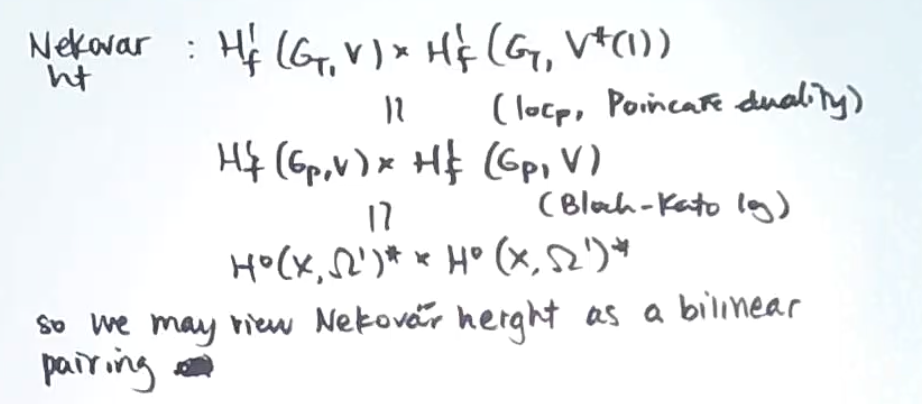 Nekovar : H¹f (G_T, V) × H¹f (G_T, V*(1))
ht
≅ (loc_p, Poincaré duality)
H¹f (G_p, V) × H¹f (G_p, V)
≅ (Bloch-Kato log)
H⁰(X, Ω¹)* × H⁰(X, Ω¹)*
so we may view Nekovář height as a bilinear
pairing